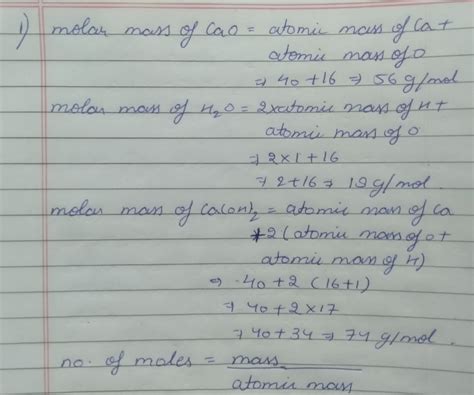 1) molar mass of CaO = atomic mass of Ca +
atomic mass of O
⇒ 40 + 16 ⇒ 56 g/mol
molar mass of H₂O = 2×atomic mass of H +
atomic mass of O
⇒ 2×1 + 16
⇒ 2+16 ⇒ 18 g/mol.
molar mass of Ca(OH)₂ = atomic mass of Ca
+2(atomic mass of O +
atomic mass of H)
⇒ 40 + 2 (16+1)
⇒ 40 + 2×17
⇒ 40+34 ⇒ 74 g/mol.
no. of moles = mass
atomic mass